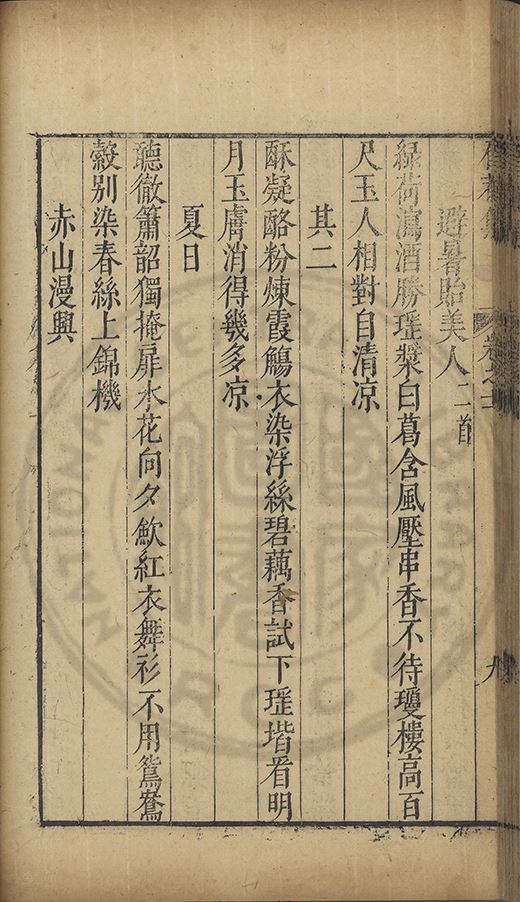 卷之十
九
避暑貽美人二首
綠荷瀉酒勝瑶漿白葛含風壓串香不待瓊樓高百
尺玉人相對自清凉
其二
酥凝酪粉煉霞觴衣染浮絲碧藕香試下瑶堦看明
月玉膚消得幾多凉
夏日
聽徹簫韶獨掩扉水花向夕歛紅衣舞衫不用鴛鴦
縠别染春絲上錦機
赤山漫興